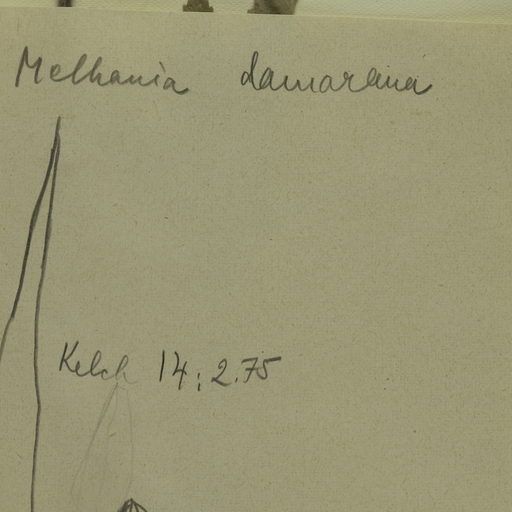 Melhania damarana
Kelch 14:2.75